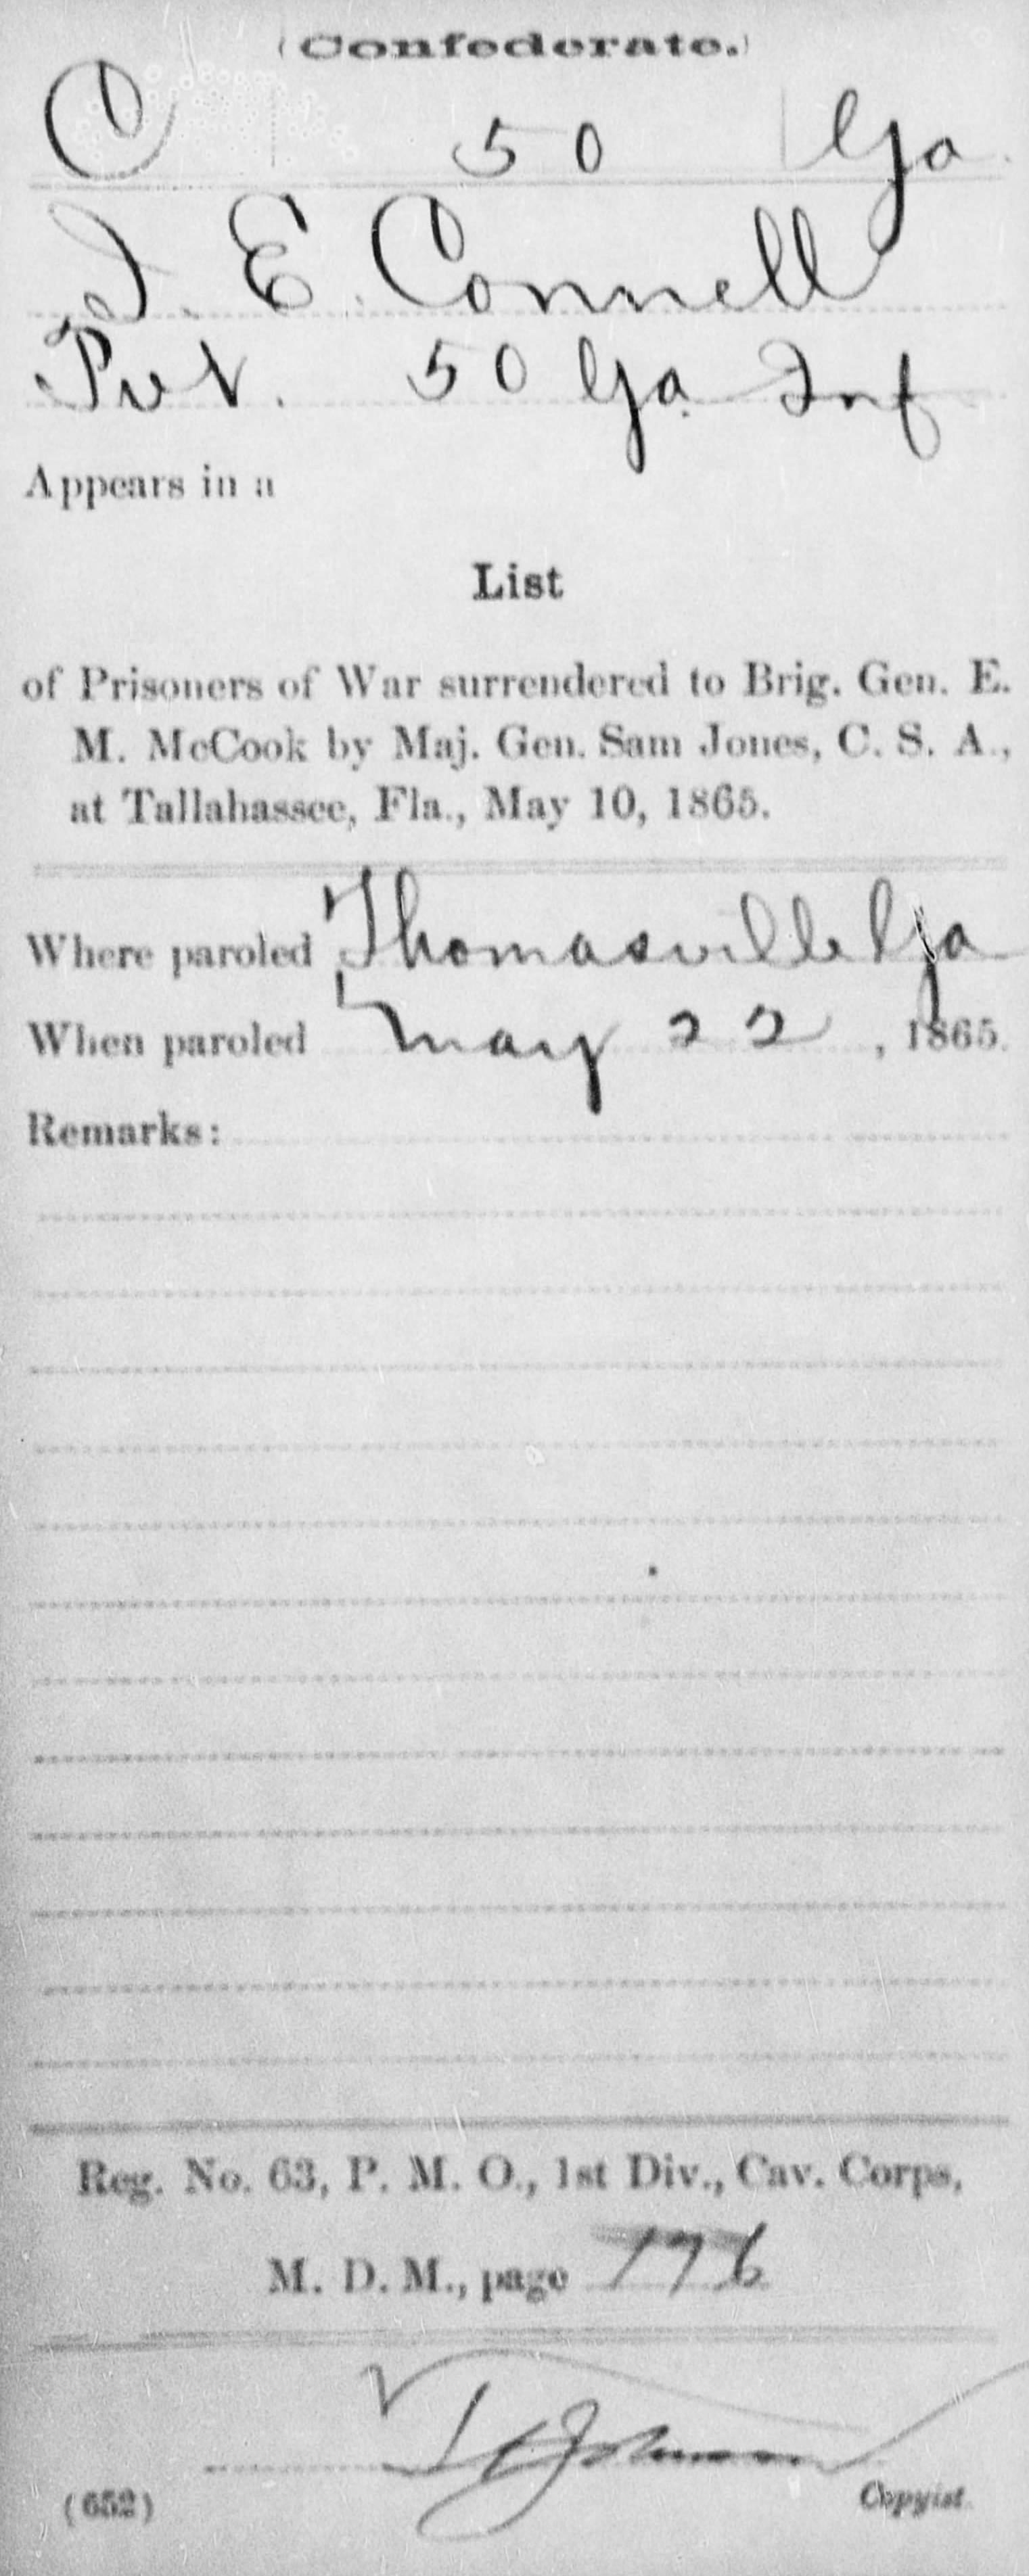 (Confederate.)
C 50 Ga
I. E. Connell
Pvt. 50 Ga Inf
Appears in a
List
of Prisoners of War surrendered to Brig. Gen. E.
M. McCook by Maj. Gen. Sam Jones, C. S. A.,
at Tallahassee, Fla., May 10, 1865.
Where paroled Thomasville Ga
When paroled May 22, 1865.
Remarks:
Reg. No. 63, P. M. O., 1st Div., Cav. Corps,
M. D. M., page 176
Johnson
(652) Copyist.